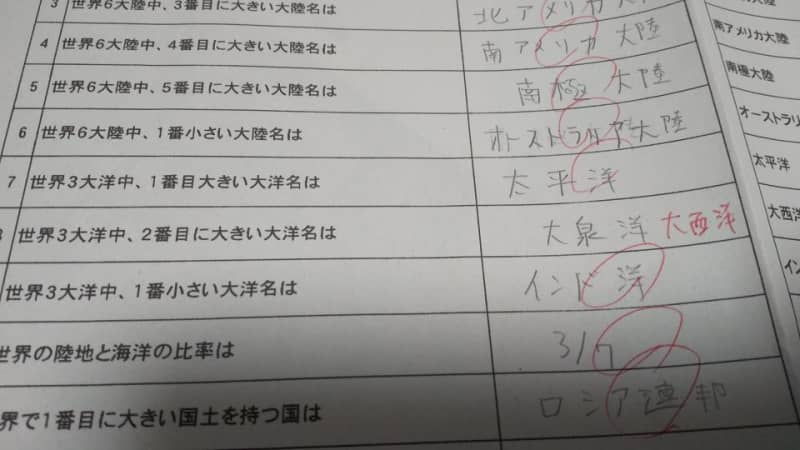 3 世界6大陸中、3番目に大きい大陸名は 北アメリカ大陸
4 世界6大陸中、4番目に大きい大陸名は 南アメリカ 大陸 南アメリカ大陸
5 世界6大陸中、5番目に大きい大陸名は 南極 大陸 南極大陸
6 世界6大陸中、1番小さい大陸名は オーストラリア大陸 オーストラリ
7 世界3大洋中、1番目大きい大洋名は 太平洋 太平洋
世界3大洋中、2番目に大きい大洋名は 大泉洋 大西洋 大西洋
世界3大洋中、1番小さい大洋名は インド洋 イン
世界の陸地と海洋の比率は 3/7
界で1番目に大きい国土を持つ国は ロシア連邦